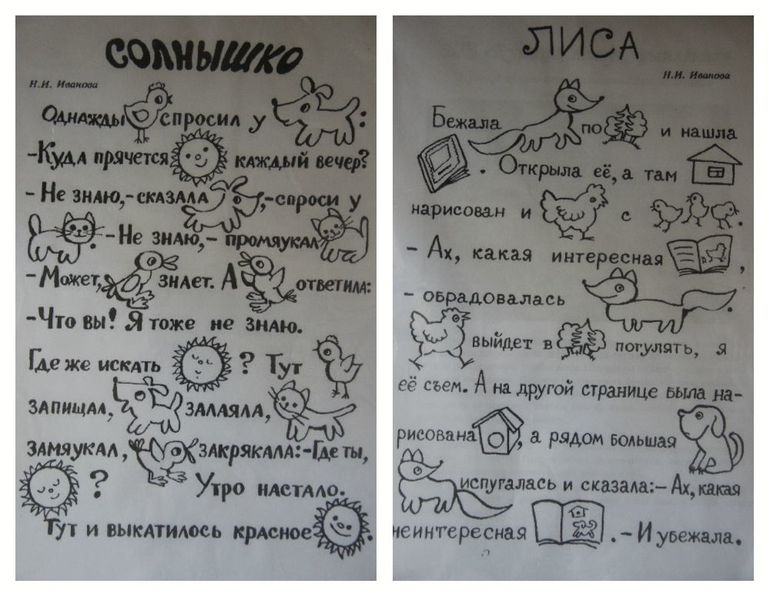 СОЛНЫШКО
Н.И. Иванова
Однажды спросил у :
-Куда прячется каждый вечер?
- Не знаю,-сказала ,-спроси у
. -Не знаю,- промяукал
-Может, знает. А ответила:
-Что вы! Я тоже не знаю.
Где же искать ? Тут
запищал, залаяла,
замяукал, закрякала:-Где ты,
? Утро настало.
Тут и выкатилось красное .
ЛИСА
Н.И. Иванова
Бежала по и нашла
. Открыла её, а там
нарисован и с .
- Ах, какая интересная ,
- обрадовалась .
выйдет в погулять, я
её съем. А на другой странице была на-
рисована , а рядом большая
испугалась и сказала:- Ах, какая
неинтересная . -И убежала.